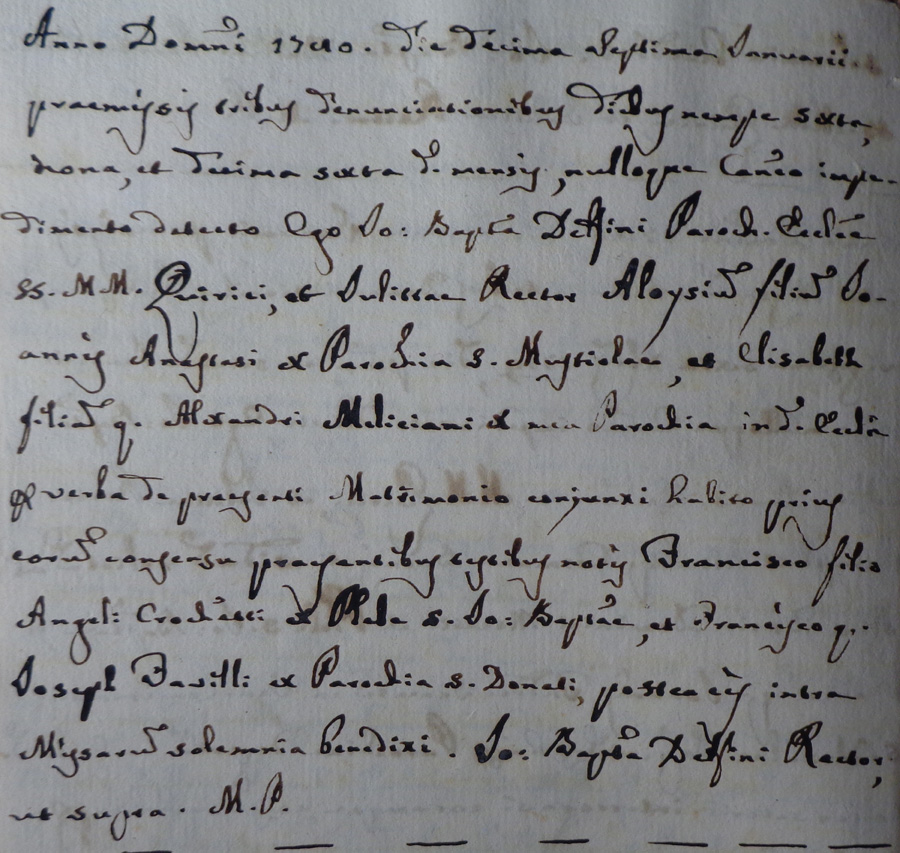 Anno Domñi 1740. die decima septima Januarii
praemissis tribus denunciationibus diebus nempe sexta,
nona, et decima sexta d. mensis, nulloque Canco impe-
dimento detecto Ego Jo: Bapta Delfini Paroch. Ecclae
SS. M M. Quirici, et Julittae Rector Aloysium filium Jo-
annis Anastasi ex Parochia S. Mustiolae, et Elisabeth
filiam q. Alexandri Meliciani ex mea Parochia in d. Eccla
per verba de praesenti Matrimonio conjunxi habito prius
eorum consensu praesentibus testibus notis Francisco filio
Angeli Crochetti ex Plebe S. Jo: Baptae, et Francisco q.
Joseph Favilli ex Parochia S. Donati, postea eis intra
Missarum solemnia benedixi. Jo: Bapta Delfini Rector,
ut supra. M. P.